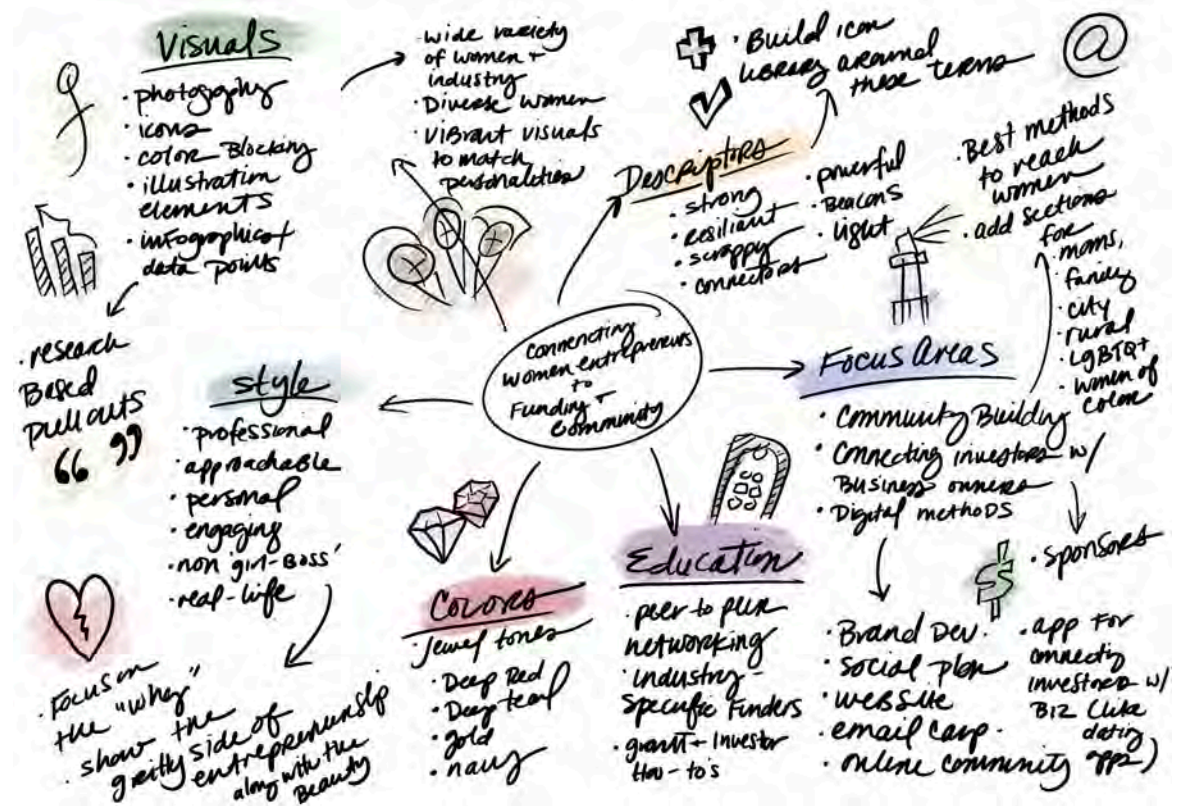 Visuals
· photography
· icons
· color Blocking
· illustration
elements
· infographics +
data points
· research
Based
pull outs
“ ”
· wide variety
of women +
industry
· Diverse women
· Vibrant visuals
to match
personalities
Descriptors
· strong
· resiliant
· scrappy
· connectors
· powerful
· Beacons
· light
· Build icon
library around
these terms
@
· Best methods
to reach
women
· add sections
for
· moms,
· city
· rural
· LGBTQ+
· women of
color
connecting
women entrepreneurs
to
Funding +
Community
Focus Areas
· Community Building
· Connecting investors w/
Business owners
· Digital methods
· Sponsors
$
· Brand Dev.
· social plan
· website
· email camp.
· online community
· app for
connectig
investors w/
BIZ (like
dating
apps)
Style
· professional
· approachable
· personal
· engaging
· non 'girl-Boss'
· real-life
· Focus on
the "why"
· show the
gritty side of
entrepreneurship
along with the
Beauty
Colors
Jewel tones
· Deep Red
· Deep teal
· gold
· navy
Education
· peer to peer
networking
· industry -
Specific Funders
· grant + Investor
How-to's